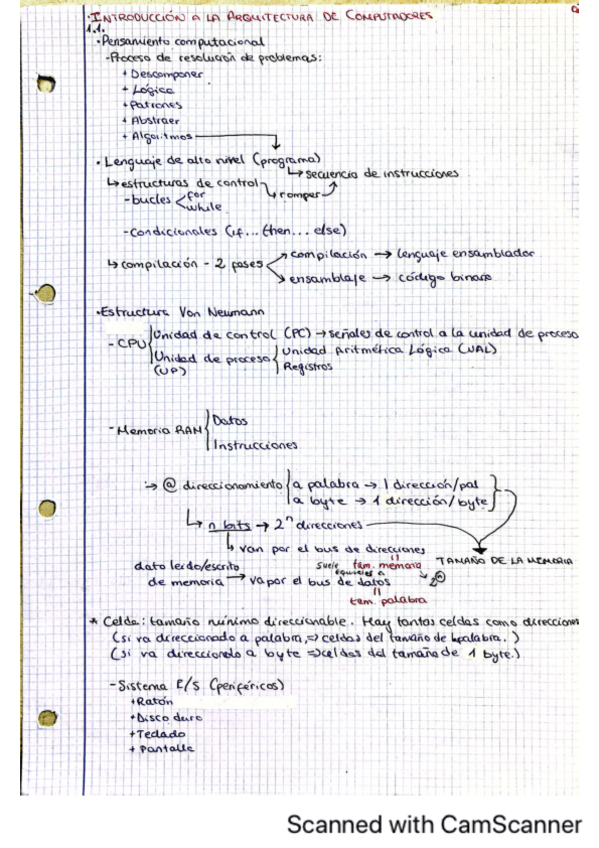 ·INTRODUCCIÓN A LA ARQUITECTURA DE COMPUTADORES
1.1.
·Pensamiento computacional
-Proceso de resolución de problemas:
+ Descomponer
+ Lógica
+ Patrones
+ Abstraer
+ Algoritmos
· Lenguaje de alto nivel (programa)
↳ secuencia de instrucciones
↳ estructuras de control
romper
-bucles < for
while
-condicionales (if... then... else)
↳ compilación - 2 fases
compilación → lenguaje ensamblador
ensamblaje → código binario
·Estructura Von Neumann
-CPU
Unidad de control (PC) → señales de control a la unidad de proceso
Unidad de proceso (UP)
Unidad Aritmética Lógica (UAL)
Registros
-Memoria RAM
Datos
Instrucciones
→ @ direccionamiento
a palabra → 1 dirección/pal
a byte → 1 dirección/byte
↳ n bits → 2ⁿ direcciones
↳ van por el bus de direcciones
TAMAÑO DE LA MEMORIA
dato leido/escrito
de memoria → va por el bus de datos
suele equivaler a
tam. memoria
2
tam. palabra
* Celda: tamaño mínimo direccionable. Hay tantas celdas como direcciones
(si va direccionado a palabra, ⇒ celdas del tamaño de palabra.)
(si va direccionado a byte ⇒ celdas del tamaño de 1 byte.)
-Sistema E/S (periféricos)
+Ratón
+Disco duro
+Teclado
+ Pantalla
Scanned with CamScanner